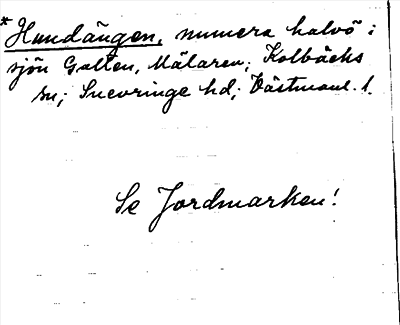 *Hundängen, numera halvö i
sjön Galten, Mälaren; Kolbäcks
sn; Snevringe hd; Västmanl. l.
Se Jordmarken!